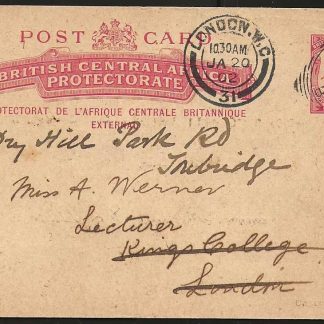 POST CARD
BRITISH CENTRAL AFRICA
PROTECTORATE
PROTECTORAT DE L'AFRIQUE CENTRALE BRITANNIQUE
EXTERNAL
LONDON.W.C
10.30AM
JA 20
02
31
Dry Hill Park Rd
Tonbridge
Miss A. Werner
Lecturer
Kings College
London